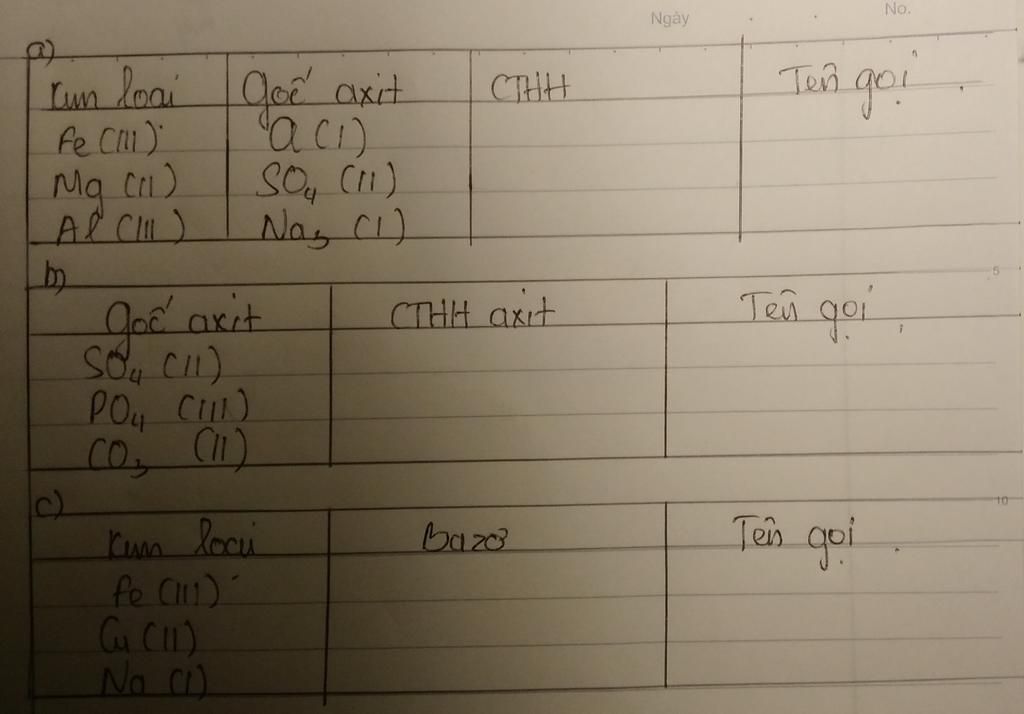 Ngày No.
a)
Kim loại Gốc axit CTHH Tên gọi
Fe (III) Cl (I)
Mg (II) SO4 (II)
Al (III) Na3 (I)
5
b)
Gốc axit CTHH axit Tên gọi
SO4 (II)
PO4 (III)
CO3 (II)
10
c)
Kim loại Bazơ Tên gọi
Fe (III)
Cu (II)
Na (I)